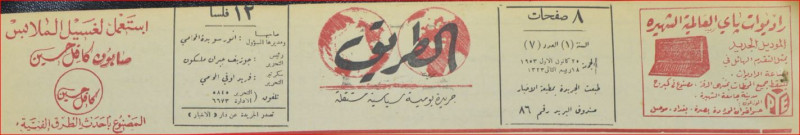 راديوات باي العالمية الشهيرة
الموديل الجديد
٨ صفحات
السنة (١) العدد (٧)
الجمعة ٢٥ كانون الاول ١٩٥٣
١٨ ربيع الثاني ١٣٧٣
طبعت الجريدة بمطبعة الاخبار
صندوق البريد رقم ٨٦
الطريق
جريدة يومية سياسية مستقلة
١٢ فلسا
صاحبها ومديرها المسؤول : أنور سويدة المحامي
رئيس التحرير : جوزيف جبران ملكون
سكرتير التحرير : فريد لوفي الحمي
تلفون التحرير ٥٨٤٥
الادارة ٦٦٧٣
تصدر الجريدة عن دار الاخبار
استعمل لغسيل الملابس
صابون كافل حسين
كافل حسين
المصنوع باحدث الطرق الفنية